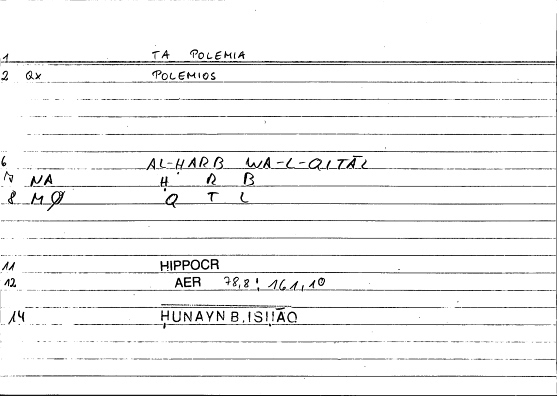 1 TA POLEMIA
2 Qx POLEMIOS
6 AL-ḤARB WA-L-QITĀL
7 NA Ḥ R B
8 MØ Q T L
11 HIPPOCR
12 AER 78,8; 161,10
14 ḤUNAYN B. ISḤĀQ